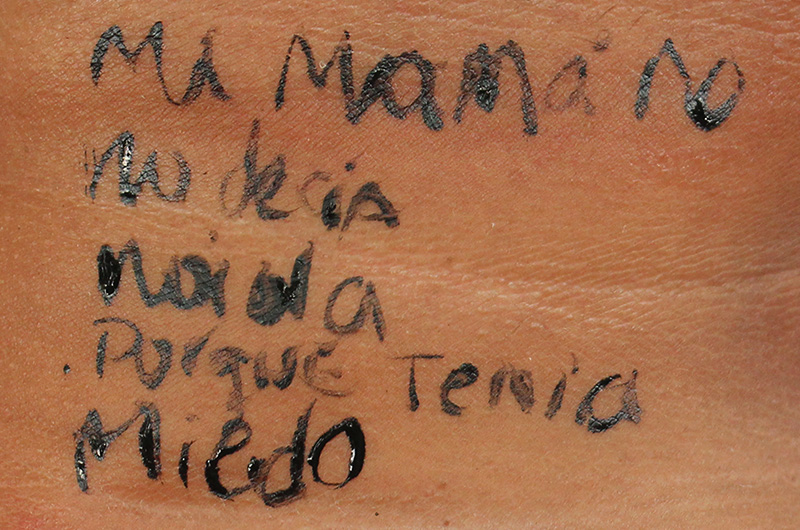 Mi Mamá no
no decia
nada
Porque Tenia
Miedo